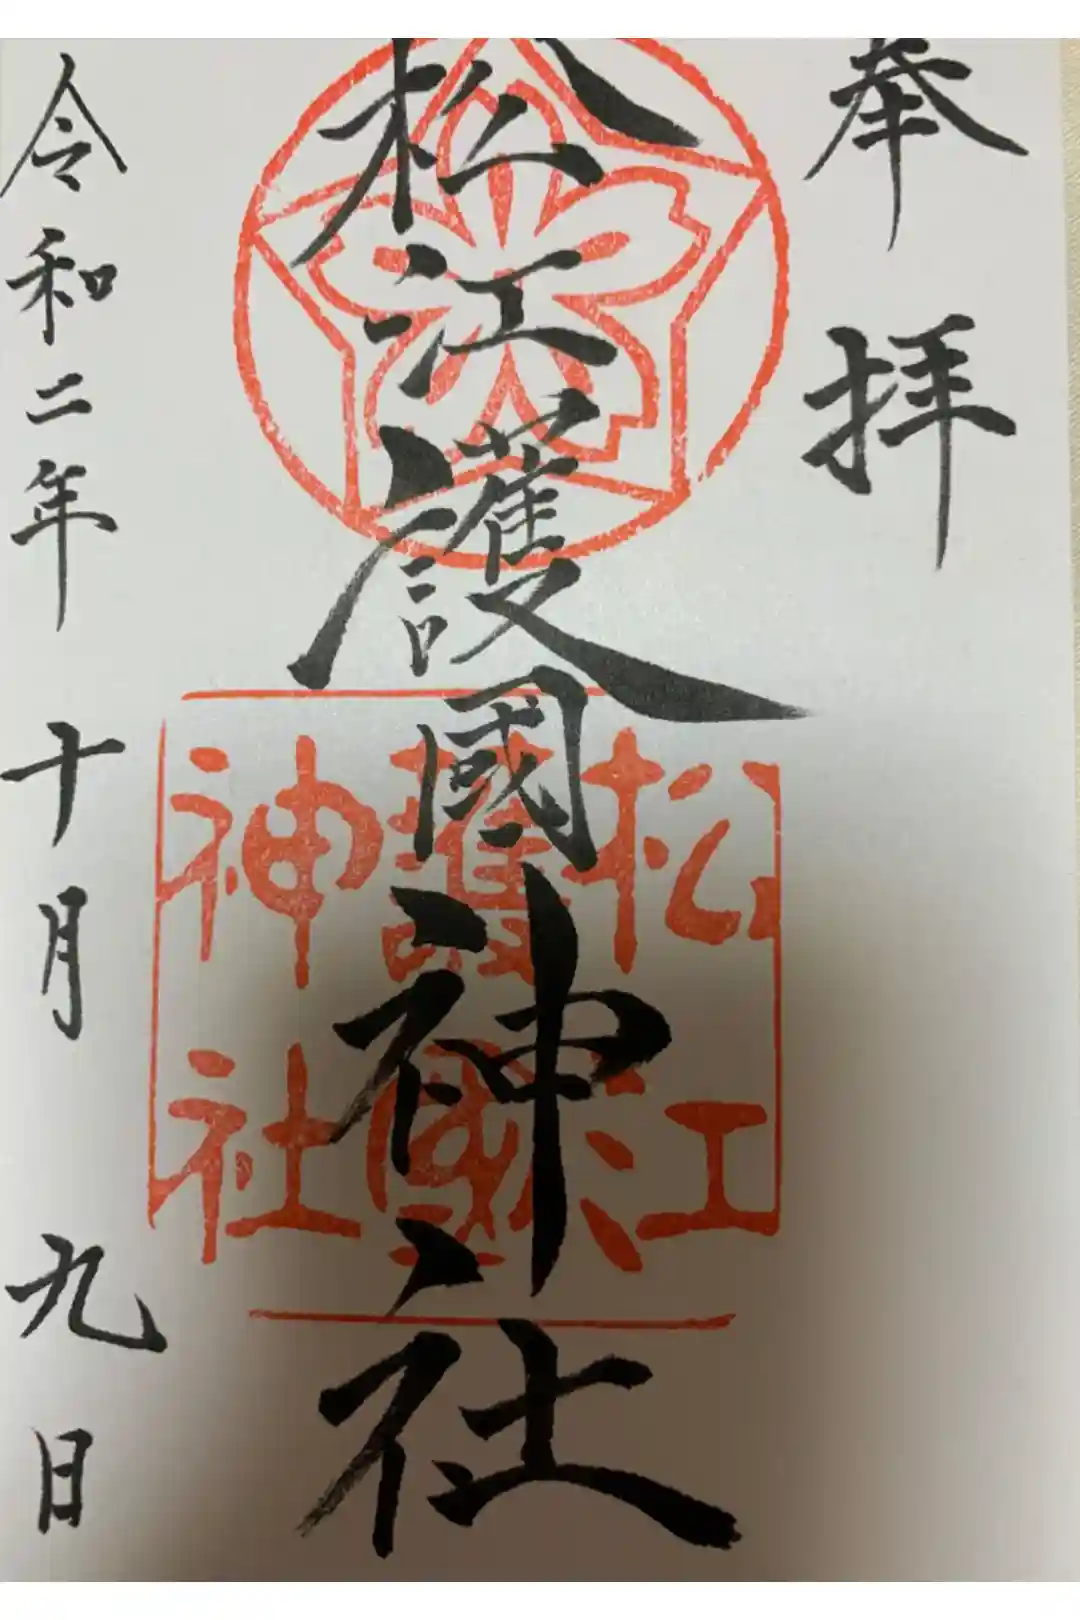 奉拝
松江護國神社
松江
護國
神社
令和二年十月九日